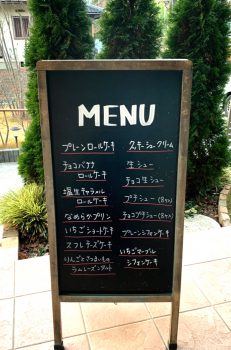 MENU
プレーンロールケーキ
チョコバナナ
ロールケーキ
塩生キャラメル
ロールケーキ
なめらかプリン
いちごショートケーキ
スフレチーズケーキ
りんごとさつまいもの
ラムレーズンタルト
クッキーシュークリーム
生シュー
チョコ生シュー
プチシュー(8ヶ入)
チョコプチシュー(8ヶ入)
プレーンシフォンケーキ
いちごマーブル
シフォンケーキ